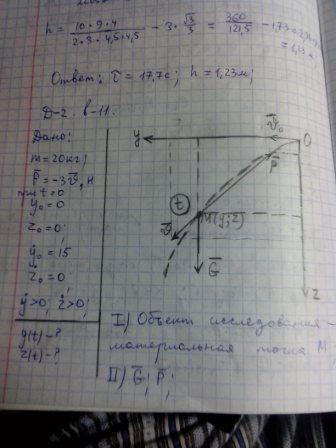 h = 10·9·4 / 2·3·4,5·4,5 - 3·√3/3 = 360/121,5 -
Ответ: τ = 17,7c; h = 1,23м;
Д-2. В-11.
Дано:
m = 20кг;
P̄ = -3v̄, Н
при t=0
y₀ = 0
z₀ = 0;
ẏ₀ = 15
ż₀ = 0;
ẏ>0; ż>0;
y(t) - ?
z(t) - ?
y
v̄₀
O
P̄
t
M(y;z)
v̄
Ḡ
z
I) Объект исследования -
материальная точка М
II) Ḡ; P̄;